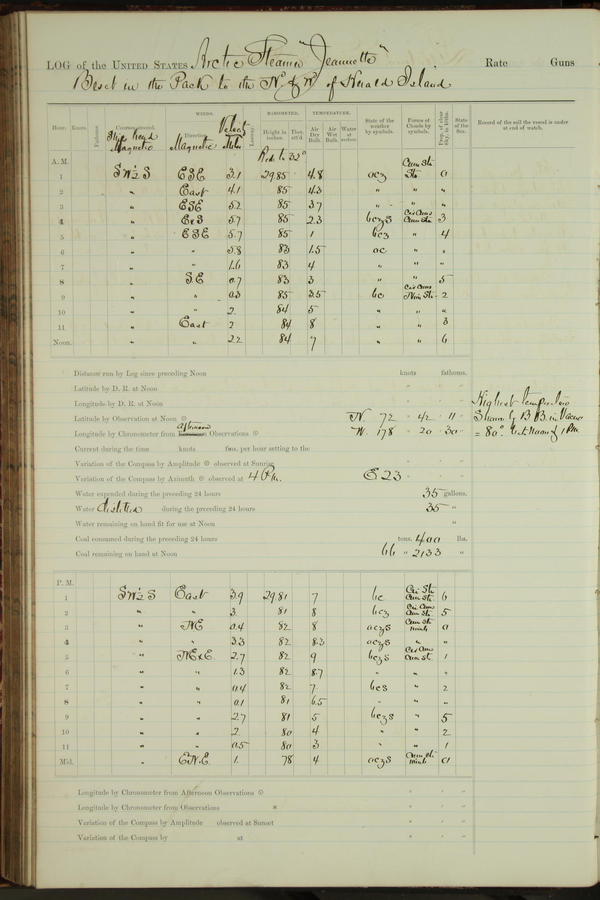 LOG of the UNITED STATES Arctic Steamer "Jeannette" Rate Guns
Beset in the Pack to the Nd & Wd of Herald Island
WINDS. BAROMETER. TEMPERATURE.
Hour. Knots. Fathoms. Courses steered. Ship's head Magnetic Direction Magnetic Velocity Miles Leeway. Height in inches. Ther. att'd. Air Dry Bulb. Air Wet Bulb. Water at surface. State of the weather by symbols. Forms of Clouds by symbols. Prop. of clear Sky, in 10ths. State of the Sea. Record of the sail the vessel is under at end of watch.
Red. to 32°
A. M. Cum Str
1 SW½S ESE 3.1 29.85 4.8 ocz Str 0
2 " East 4.1 85 4.3 " " "
3 " ESE 5.2 85 3.7 " " "
4 " ExS 5.7 85 2.3 bczs Cir Cum Cum Str 3
5 " ESE 5.7 85 1 bcz " 4
6 " " 5.8 83 1.5 oc " "
7 " " 1.6 83 4 " " "
8 " SE 0.7 83 3 " " 5
9 " " 0.3 85 3.5 bc Cir Cum Nim Str 2
10 " " 2. 84 5 " " "
11 " East 2 84 8 " " 3
Noon. " " 2.2 84 7 " " 6
Distance run by Log since preceding Noon knots fathoms.
Latitude by D. R. at Noon
Longitude by D. R. at Noon
Latitude by Observation at Noon N. 72 ° 42 ' 11 "
Longitude by Chronometer from afternoon Observations W. 178 ° 20 ' 30 "
Highest temperature
Shown by B B in Vacuo
= 80°. bet. Noon & 1 PM
Current during the time knots fms. per hour setting to the
Variation of the Compass by Amplitude observed at Sunrise
Variation of the Compass by Azimuth observed at 4 P.m. E 23
Water expended during the preceding 24 hours 35 gallons.
Water distilled during the preceding 24 hours 35 "
Water remaining on hand fit for use at Noon "
Coal consumed during the preceding 24 hours tons. 400 lbs.
Coal remaining on hand at Noon 66 " 2133 "
P. M.
1 SW½S East 3.9 29.81 7 bc Cir Str Cum Str 6
2 " " 3. 81 8 bcz Cir Cum Cum Str 5
3 " NE 0.4 82 8 oczs Cum Str Nimb 0
4 " " 3.3 82 8.3 oczs " "
5 " NExE 2.7 82 9 bczs Cir Cum Cum Str 1
6 " " 1.3 82 8.7 " " "
7 " " 0.4 82 7 bcs " 2
8 " " 0.1 81 6.5 " " "
9 " " 2.7 81 5 bczs " 5
10 " " 2. 80 4 " " 2
11 " " 0.5 80 3 " " 1
Mid. " ENE 1. 78 4 oczs Cum Str Nimb 0
Longitude by Chronometer from Afternoon Observations
Longitude by Chronometer from Observations
Variation of the Compass by Amplitude observed at Sunset
Variation of the Compass by at